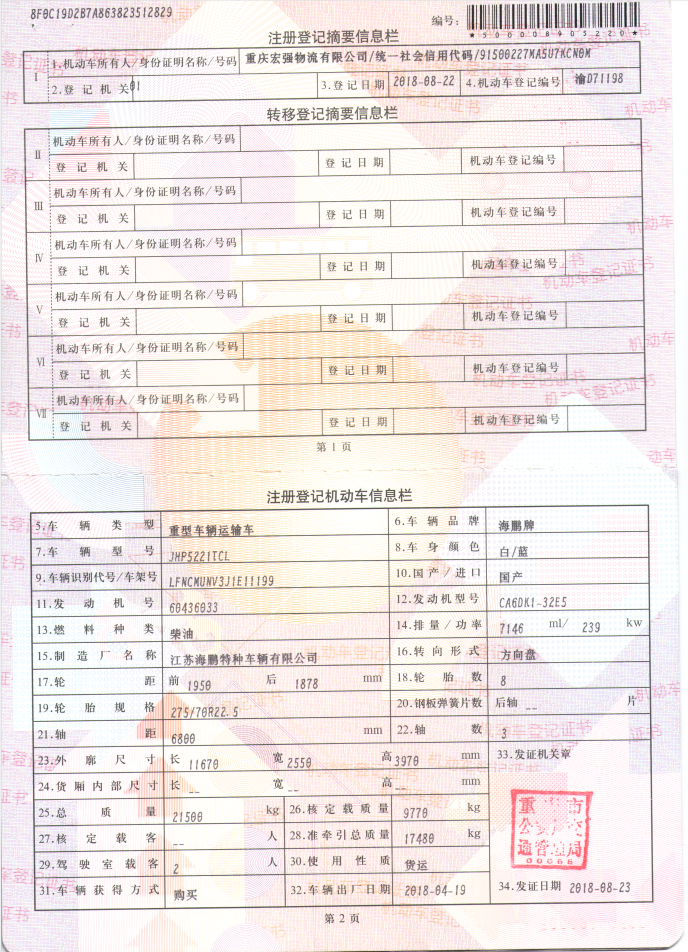 8F0C19D2B7A863823512829
编号:
*500008905220*
注册登记摘要信息栏
I 1.机动车所有人/身份证明名称/号码 重庆宏强物流有限公司/统一社会信用代码/91500227MA5U7KCN0M
2.登记机关 01 3.登记日期 2018-08-22 4.机动车登记编号 渝D71198
转移登记摘要信息栏
II 机动车所有人/身份证明名称/号码
登记机关 登记日期 机动车登记编号
III 机动车所有人/身份证明名称/号码
登记机关 登记日期 机动车登记编号
IV 机动车所有人/身份证明名称/号码
登记机关 登记日期 机动车登记编号
V 机动车所有人/身份证明名称/号码
登记机关 登记日期 机动车登记编号
VI 机动车所有人/身份证明名称/号码
登记机关 登记日期 机动车登记编号
VII 机动车所有人/身份证明名称/号码
登记机关 登记日期 机动车登记编号
第1页
注册登记机动车信息栏
5.车辆类型 重型车辆运输车 6.车辆品牌 海鹏牌
7.车辆型号 JHP5221TCL 8.车身颜色 白/蓝
9.车辆识别代号/车架号 LFNCMUNV3J1E11199 10.国产/进口 国产
11.发动机号 60436033 12.发动机型号 CA6DK1-32E5
13.燃料种类 柴油 14.排量/功率 7146 ml/ 239 kw
15.制造厂名称 江苏海鹏特种车辆有限公司 16.转向形式 方向盘
17.轮距 前 1950 后 1878 mm 18.轮胎数 8
19.轮胎规格 275/70R22.5 20.钢板弹簧片数 后轴 -- 片
21.轴距 6800 mm 22.轴数 3
23.外廓尺寸 长 11670 宽 2550 高 3970 mm 33.发证机关章
24.货厢内部尺寸 长 -- 宽 -- 高 -- mm
25.总质量 21500 kg 26.核定载质量 9770 kg
27.核定载客 -- 人 28.准牵引总质量 17480 kg
29.驾驶室载客 2 人 30.使用性质 货运
31.车辆获得方式 购买 32.车辆出厂日期 2018-04-19 34.发证日期 2018-08-23
重庆市
公安局交
通管理局
00066
第2页